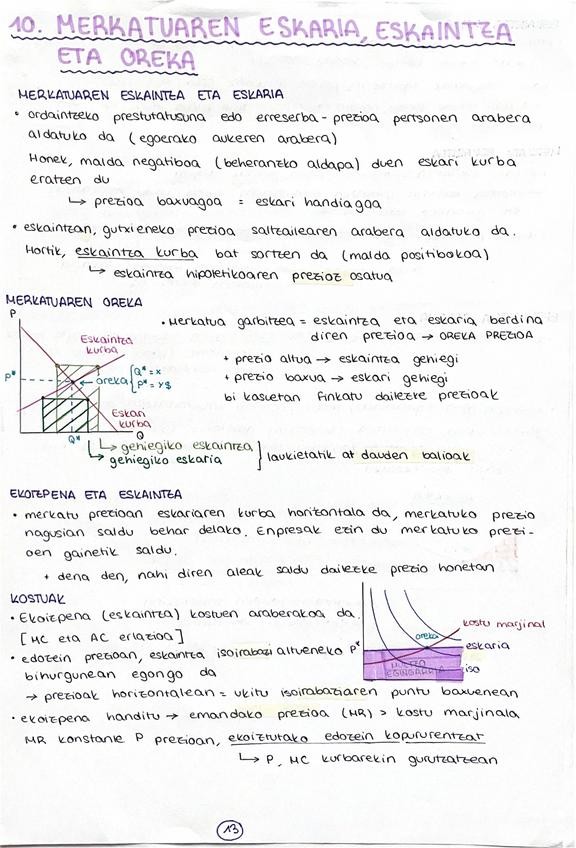 10. MERKATUAREN ESKARIA, ESKAINTZA
ETA OREKA
MERKATUAREN ESKAINTZA ETA ESKARIA
• ordaintzeko prestutatusuna edo erreserba-prezioa pertsonen arabera
aldatuko da (egoerako aukeren arabera)
Honek, malda negatiboa (beheranzko aldapa) duen eskari kurba
eratzen du
↳ prezioa baxuagoa = eskari handiagoa
• eskaintzan, gutxieneko prezioa saltzailearen arabera aldatuko da.
Hortik, eskaintza kurba bat sortzen da (malda positibokoa)
↳ eskaintza hipotetikoaren prezioz osatua
MERKATUAREN OREKA
P
Eskaintza
kurba
P*
oreka { Q* = x
P* = y$
Eskari
kurba
Q*
Q
↳ gehiegiko eskaintza
↳ gehiegiko eskaria
} laukietatik at dauden balioak
• Merkatua garbitzea = eskaintza eta eskaria berdina
diren prezioa → OREKA PREZIOA
+ prezio altua → eskaintza gehiegi
+ prezio baxua → eskari gehiegi
bi kasuetan finkatu daitezke prezioak
EKOIZPENA ETA ESKAINTZA
• merkatu prezioan eskariaren kurba horizontala da, merkatuko prezio
nagusian saldu behar delako. Enpresak ezin du merkatuko prezi-
oen gainetik saldu.
+ dena den, nahi diren aleak saldu daitezke prezio honetan
KOSTUAK
• Ekoizpena (eskaintza) kostuen araberakoa da.
[MC eta AC erlazioa]
• edozein prezioan, eskaintza isoirabazi altueneko
bihurgunean egongo da
→ prezioak horizontalean = ukitu isoirabaziaren puntu baxuenean
P*
oreka
kostu marjinal
eskaria
iso
MULTZO
EGINGARRIA
• ekoizpena handitu → emandako prezioa (MR) > kostu marjinala
MR konstante P prezioan, ekoiztutako edozein kopururentzat
↳ P, MC kurbarekin gurutzatzean
13